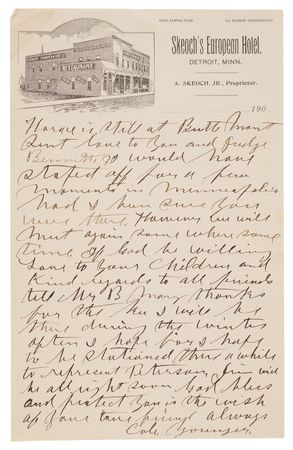 GOOD SAMPLE ROOM. ALL MODERN CONVENIENCES
Skeoch's European Hotel.
DETROIT, MINN.
A. SKEOCH, JR., Proprietor.
RESTAURANT
190
Horace is still at Butte Mont
Sent love to you and Judge
Bennett I would have
stoped off for a few
moments in Minneapolis
had I been sure you
were there. However we will
meet again some where some
time if God be willing
Love to your children and
Kind regards to all friends
tell My B many thanks
for the I will be
there during the winter
often I hope for I hope
to be stationed there a while
to represent Peterson Jim will
be all right soon God bless
and protect you is the wish
of your true friend always
Cole Younger